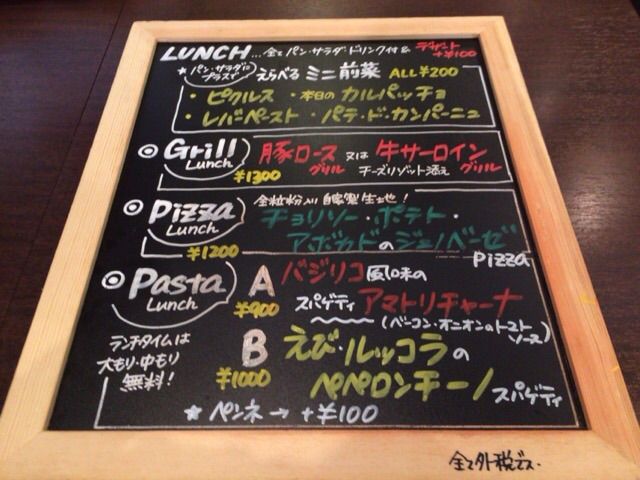 LUNCH...全てパン・サラダ・ドリンク付& デザート +¥100
★パン・サラダに プラスで えらべる ミニ前菜 ALL¥200
・ピクルス ・本日の カルパッチョ
・レバペースト ・パテ・ド・カンパーニュ
◎ Grill Lunch ¥1300
豚ロース グリル 又は 牛サーロイン グリル
チーズリゾット添え
◎ Pizza Lunch ¥1200
全粒粉入り 自家製生地!
チョリソー・ポテト・
アボカドのジェノベーゼ
pizza
◎ Pasta Lunch
A ¥900 バジリコ風味の
スパゲティ アマトリチャーナ
(ベーコン・オニオンのトマト ソース)
ランチタイムは
大もり・中もり
無料!
B ¥1000 えび・ルッコラの
ペペロンチーノ スパゲティ
★ペンネ→+¥100
全て外税です.